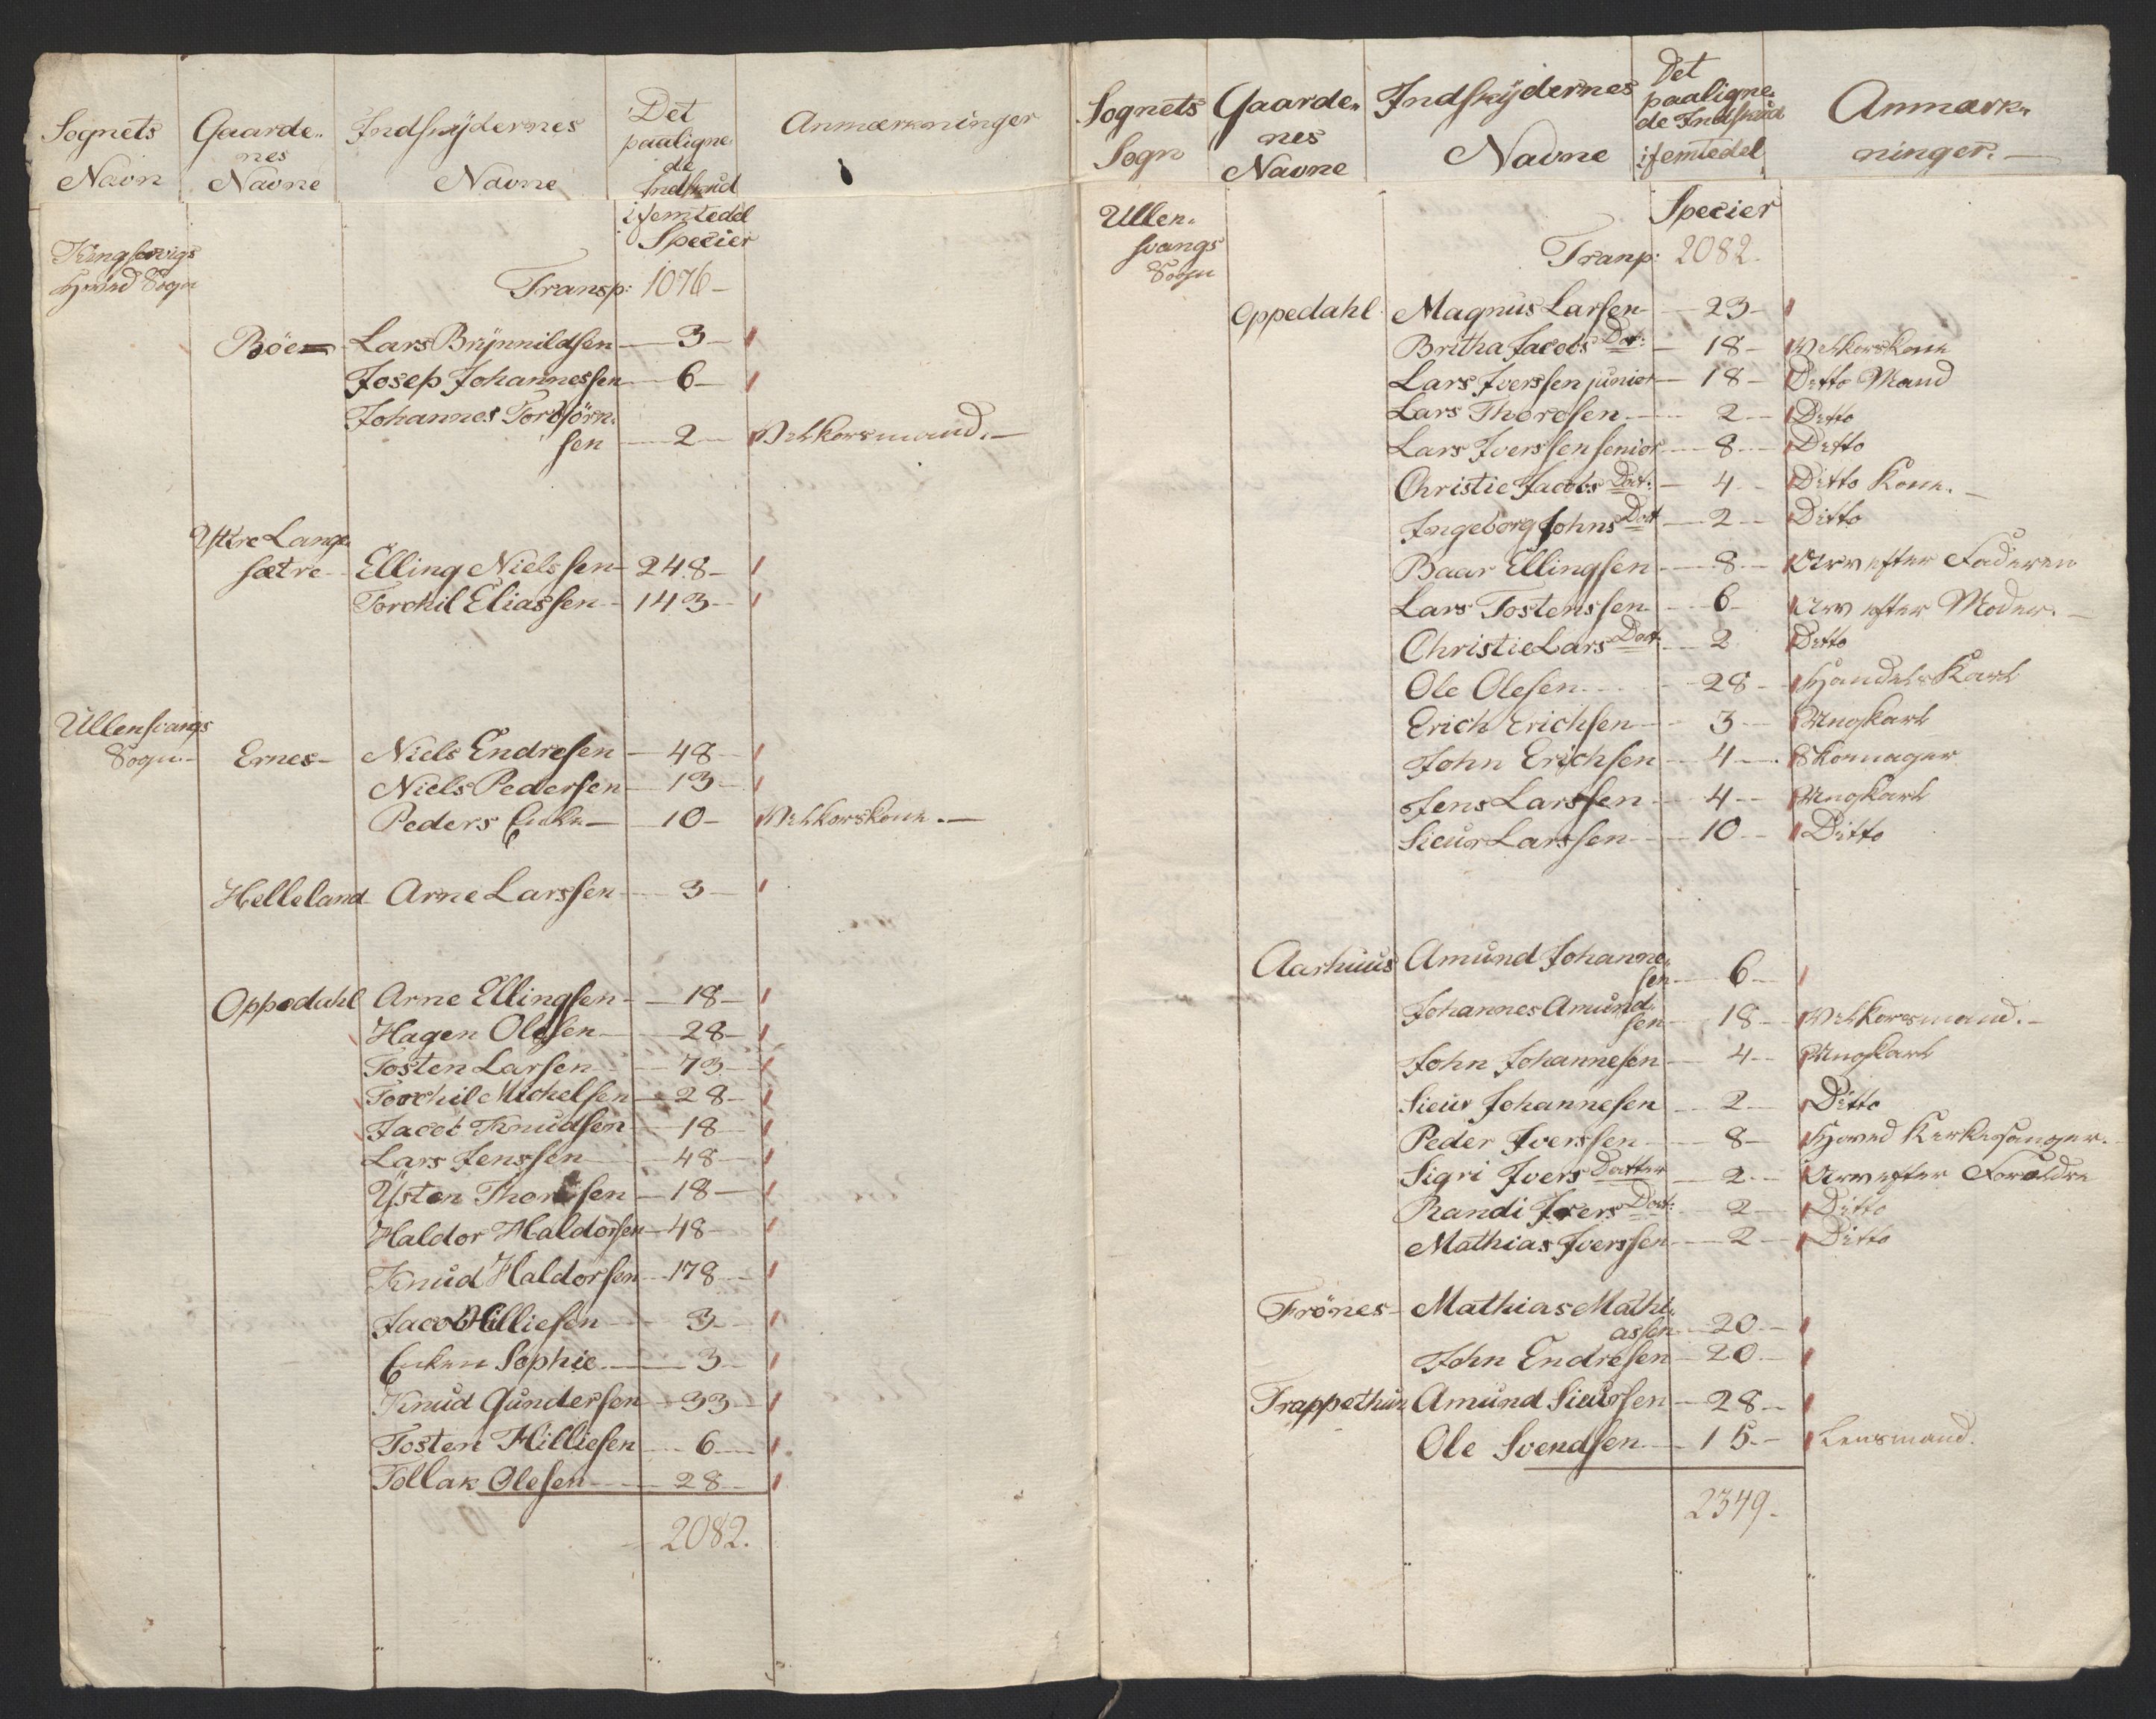 Sognets Navn | Gaarde-nes Navne | Indskÿdernes Navne | Det paaligne-de Indskud i femtedel Specier | Anmærkninger
Kingservigs
Hoved Sogn
Transp: 1076-
Böe - Lars Brÿnnildsen - 3 -
Josep Johannessen - 6 -
Johannes Torbjörn-
sen - 2 - Velkorsmand. -
Yttre Lange-
sætre - Elling Nielssen - 248 -
Torchil Eliassen - 143 -
Ullensvangs
Sogn - Ernes - Niels Endresen - 48 -
Niels Pedersen - 13 -
Peders Enke - 10 - Velkorskone. -
Helleland - Arne Larssen - 3 -
Oppedahl Arne Ellingsen - 18 -
Hagen Olesen - 28 -
Tosten Larsen - 73 -
Torchil Michelsen - 28 -
Jacob Knudsen - 18 -
Lars Jenssen - 48 -
Ÿsten Thorssen - 18 -
Haldor Haldorsen - 48 -
Knud Haldorsen - 178 -
Jacob Hilliesen - 3 -
Enken Sophie - 3 -
Knud Gundersen - 33 -
Tosten Hilliesen - 6 -
Tollak Olesen - 28 -
2082.
Sognets Sogn | Gaarde-nes Navne | Indskÿdernes Navne | Det paaligne-de Indskud i femtedel Specier | Anmærk-ninger. -
Ullen-
svangs
Sogn
Tranp: 2082.
Oppedahl Magnus Larsen - 23 -
Britha Jacobs Dat: - 18 - Velkorskone
Lars Iverssen junior - 18 - Ditto Mand
Lars Thorosen - 2 - Ditto
Lars Iverssen senior - 8 - Ditto
Christie Jacobs Dat: - 4 - Ditto Kone. -
Ingeborg Johns Datt - 2 - Ditto
Baar Ellingsen - 8 - Arv efter Faderen
Lars Tostenssen - 6 - Arv efter Moder. -
Christie Lars Dat: - 2 Ditto
Ole Olesen - 28 - Handels Karl
Erich Erichsen - 3 - Ungkarl
John Erichsen - 4 - Skomager
Jens Larssen - 4 - Ungkarl
Sieur Larssen - 10 - Ditto
Aarhuus Amund Johanne-
sen - 6 -
Johannes Amund-
sen - 18 - Velkorsmand. -
John Johannesen - 4 - Ungkarl
Sieur Johannesen - 2 - Ditto
Peder Iverssen - 8 - Hoved Kirkesanger.
Sigri Ivers Datter - 2 - Arv efter Forældre
Randi Ivers Dat: - 2 - Ditto
Mathias Iverssen - 2 - Ditto
Frönes - Mathias Mathi-
assen - 20 -
John Endresen - 20 -
Trappethun Amund Sieurssen - 28 -
Ole Svendsen - 15 - Lensmand.
2349.